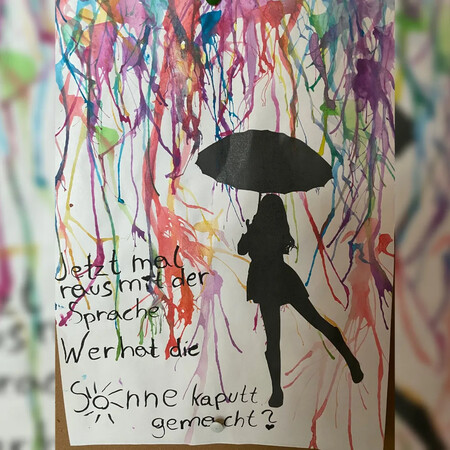 Jetzt mal
raus mit der
Sprache
Wer hat die
Sonne kaputt
gemacht?